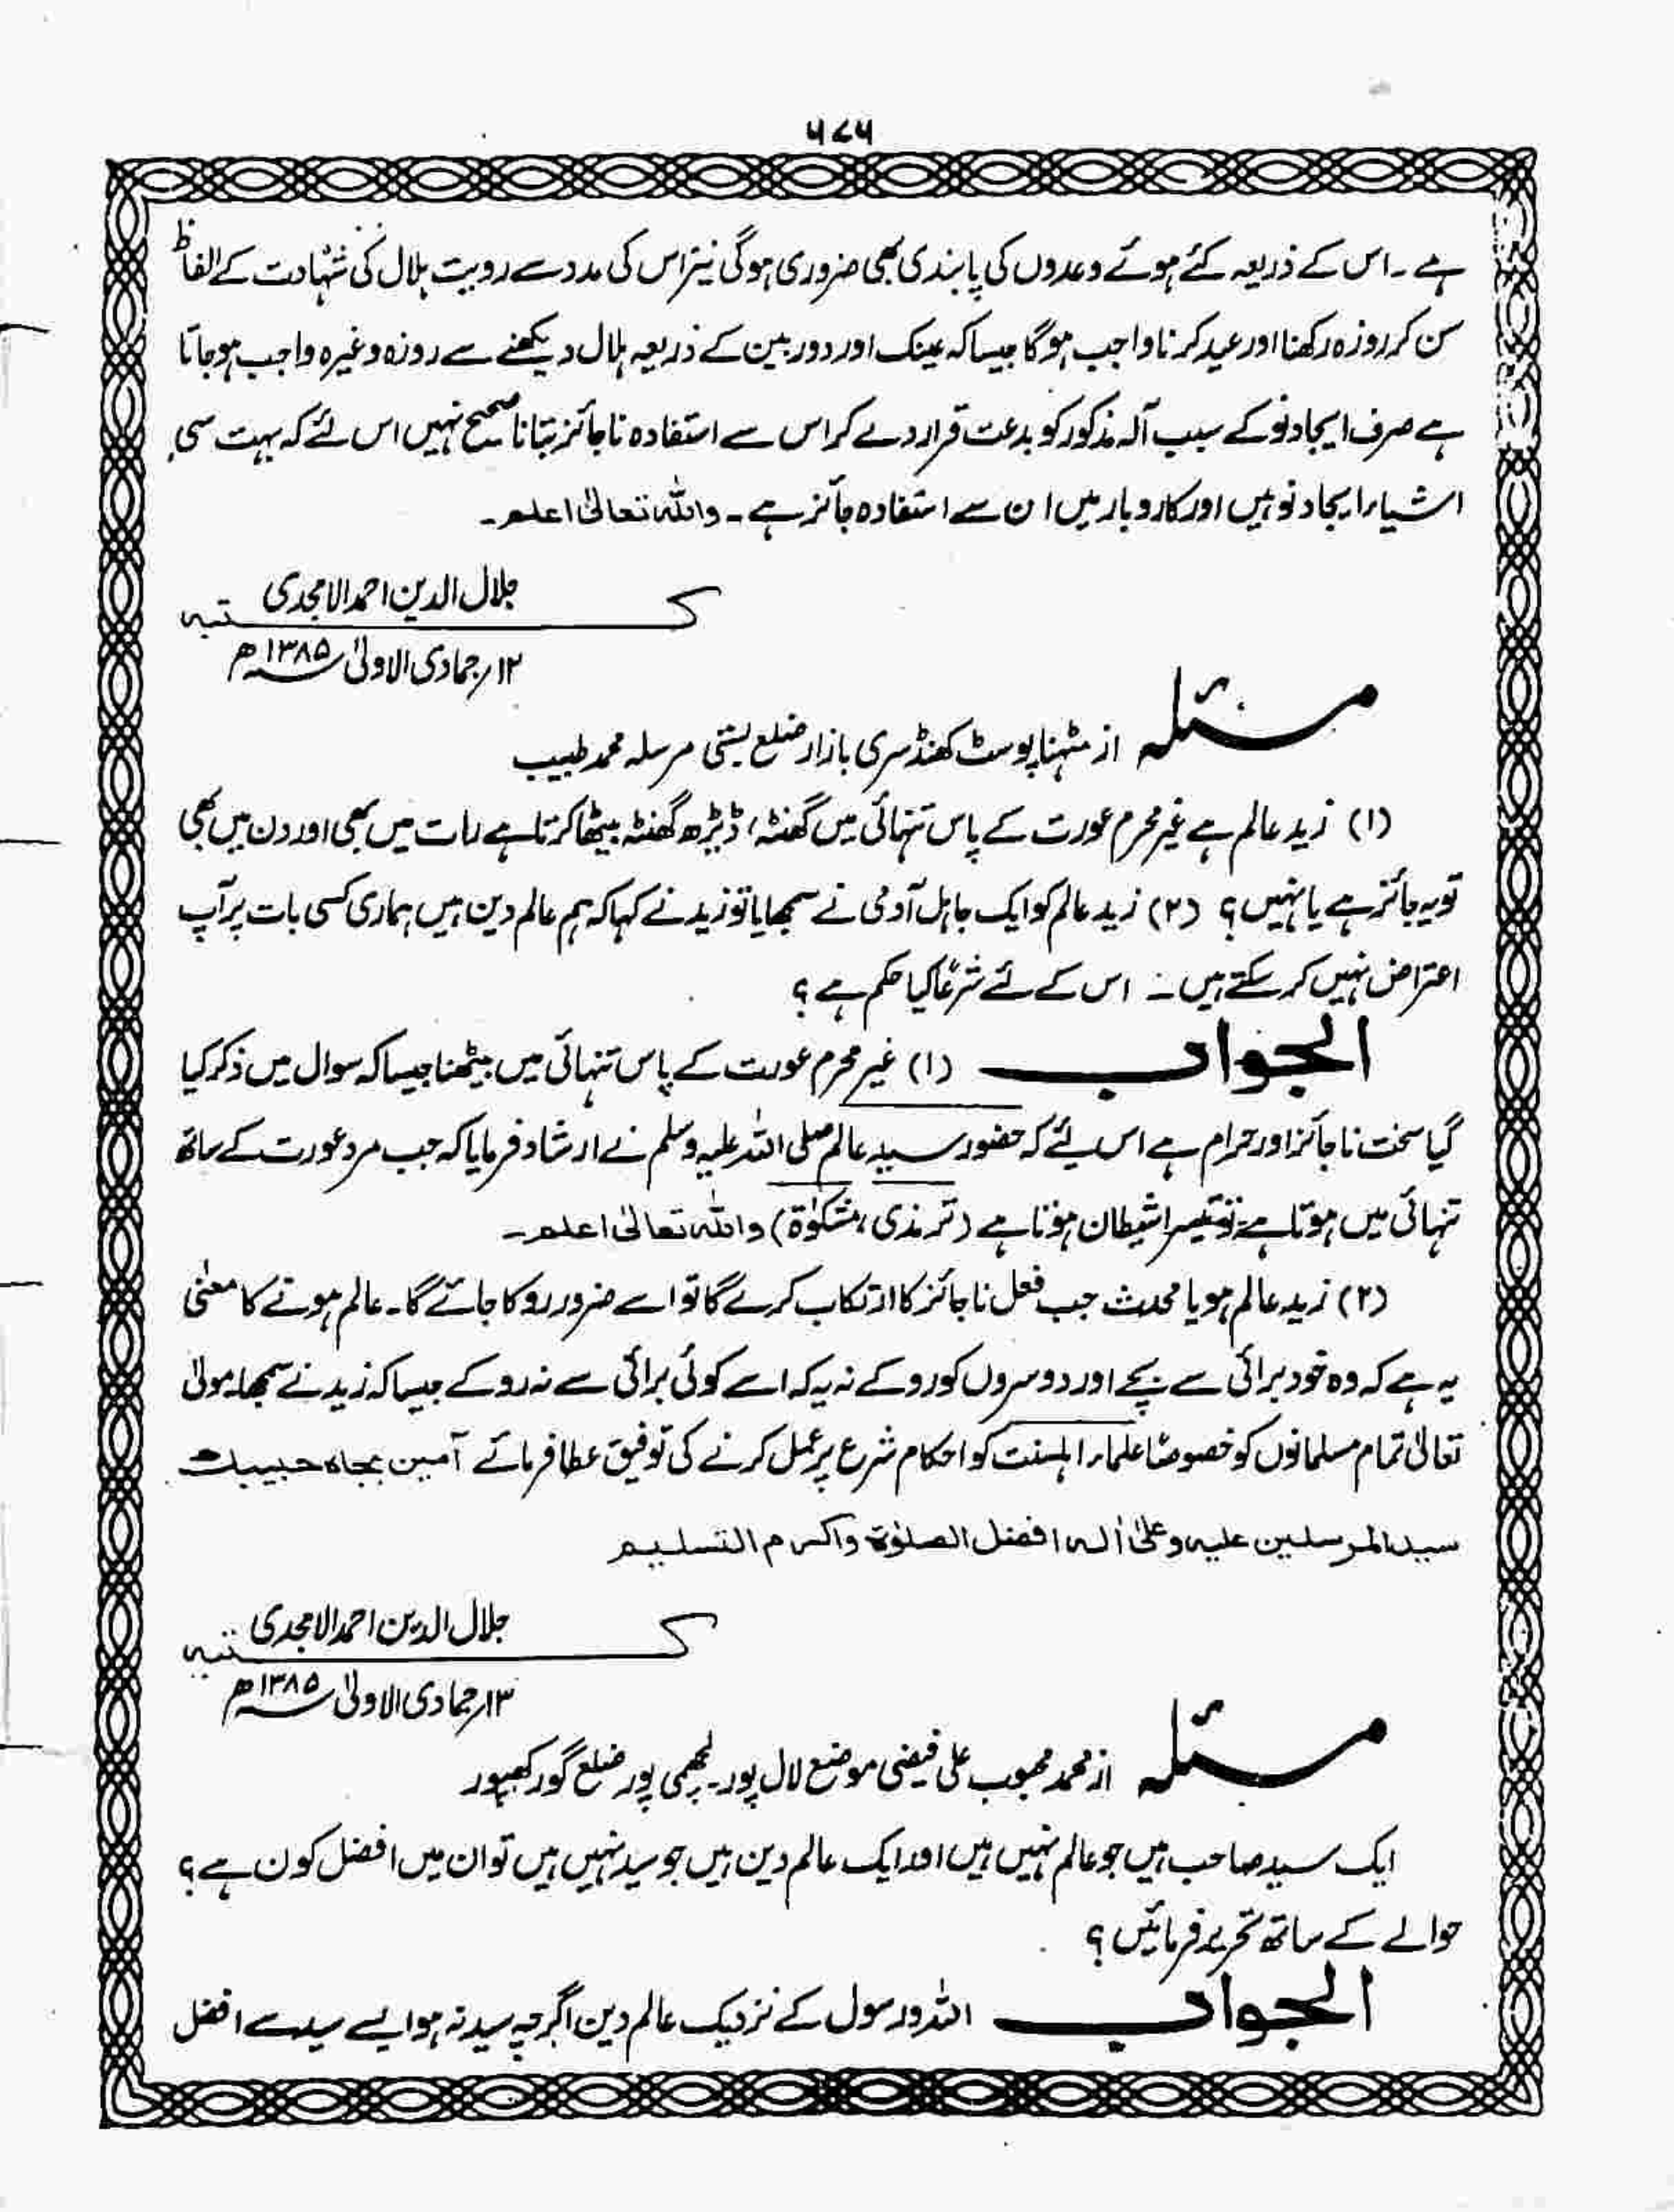 ۵۷۵
ہے۔ اس کے ذریعہ کئے ہوئے وعدوں کی پابندی بھی ضروری ہوگی نیز اس کی مدد سے رویت ہلال کی شہادت کے الفاظ
سن کر روزہ رکھنا اور عید کرنا واجب ہوگا جیسا کہ عینک اور دوربین کے ذریعہ ہلال دیکھنے سے روزہ وغیرہ واجب ہوجاتا
ہے صرف ایجاد نو کے سبب آلہ مذکور کو بدعت قرار دے کر اس سے استفادہ ناجائز بتانا صحیح نہیں اس لئے کہ بہت سی
اشیاء ایجاد نو ہیں اور کاروبار میں ان سے استفادہ جائز ہے۔ واللہ تعالیٰ اعلم۔
کتبہ جلال الدین احمد الامجدی
۱۲؍جمادی الاولیٰ ۱۳۸۵ھ
مسئلہ از مٹہنا پوسٹ کھنڈسری بازار ضلع بستی مرسلہ محمد طبیب
(۱) زید عالم ہے غیر محرم عورت کے پاس تنہائی میں گھنٹہ، ڈیڑھ گھنٹہ بیٹھا کرتا ہے رات میں بھی اور دن میں بھی
تو یہ جائز ہے یا نہیں؟ (۲) زید عالم کو ایک جاہل آدمی نے سمجھایا تو زید نے کہا کہ ہم عالم دین ہیں ہماری کسی بات پر آپ
اعتراض نہیں کر سکتے ہیں ۔ اس کے لئے شرعًا کیا حکم ہے؟
الجواب (۱) غیر محرم عورت کے پاس تنہائی میں بیٹھنا جیسا کہ سوال میں ذکر کیا
گیا سخت ناجائز اور حرام ہے اس لئے کہ حضور سید عالم صلی اللہ علیہ وسلم نے ارشاد فرمایا کہ جب مرد عورت کے ساتھ
تنہائی میں ہوتا ہے تو تیسرا شیطان ہوتا ہے (ترمذی، مشکوٰۃ) واللہ تعالیٰ اعلم۔
(۲) زید عالم ہو یا محدث جب فعل ناجائز کا ارتکاب کرے گا تو اسے ضرور روکا جائے گا۔ عالم ہونے کا معنٰی
یہ ہے کہ وہ خود برائی سے بچے اور دوسروں کو روکے نہ یہ کہ اسے کوئی برائی سے نہ روکے جیسا کہ زید نے سمجھا۔ مولیٰ
تعالیٰ تمام مسلمانوں کو خصوصًا علماء اہلسنت کو احکام شرع پر عمل کرنے کی توفیق عطا فرمائے آمین بجاہ حبیبك
سید المرسلین علیہ وعلیٰ اٰلہ افضل الصلوٰۃ واکرم التسلیم
کتبہ جلال الدین احمد الامجدی
۱۳؍جمادی الاولیٰ ۱۳۸۵ھ
مسئلہ از محمد محبوب علی فیضی موضع لال پور۔ لچھمی پور ضلع گورکھپور
ایک سید صاحب ہیں جو عالم نہیں ہیں اور ایک عالم دین ہیں جو سید نہیں ہیں تو ان میں افضل کون ہے؟
حوالے کے ساتھ تحریر فرمائیں؟
الجواب اللہ ورسول کے نزدیک عالم دین اگرچہ سید نہ ہو ایسے سید سے افضل